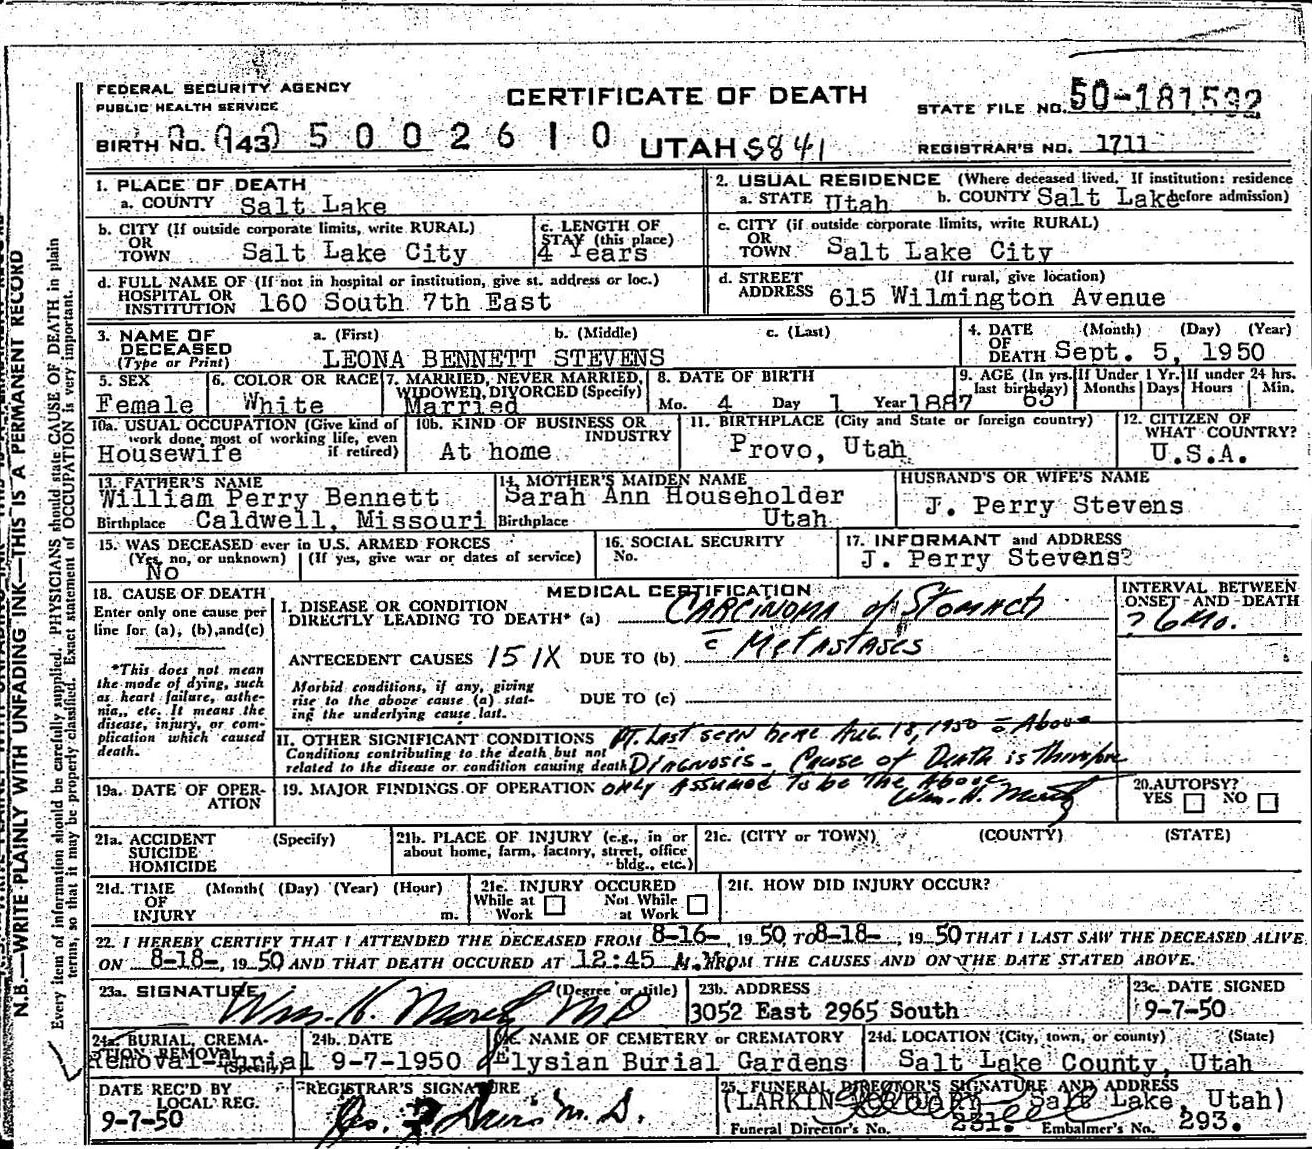 FEDERAL SECURITY AGENCY
PUBLIC HEALTH SERVICE
CERTIFICATE OF DEATH
STATE FILE NO. 50-181592
BIRTH NO. (143) 5 0 0 2 6 1 0
UTAH S841
REGISTRAR'S NO. 1711
N.B.—WRITE PLAINLY WITH UNFADING INK—THIS IS A PERMANENT RECORD
Every item of information should be carefully supplied. PHYSICIANS should state CAUSE OF DEATH in plain
terms, so that it may be properly classified. Exact statement of OCCUPATION is very important.
1. PLACE OF DEATH
a. COUNTY Salt Lake
2. USUAL RESIDENCE (Where deceased lived. If institution: residence before admission)
a. STATE Utah b. COUNTY Salt Lake
b. CITY (If outside corporate limits, write RURAL)
OR
TOWN Salt Lake City
c. LENGTH OF
STAY (this place)
4 Years
c. CITY (if outside corporate limits, write RURAL)
OR
TOWN Salt Lake City
d. FULL NAME OF (If not in hospital or institution, give st. address or loc.)
HOSPITAL OR
INSTITUTION 160 South 7th East
d. STREET (If rural, give location)
ADDRESS 615 Wilmington Avenue
3. NAME OF
DECEASED
(Type or Print)
a. (First) b. (Middle) c. (Last)
LEONA BENNETT STEVENS
4. DATE (Month) (Day) (Year)
OF
DEATH Sept. 5, 1950
5. SEX
Female
6. COLOR OR RACE
White
7. MARRIED, NEVER MARRIED,
WIDOWED, DIVORCED (Specify)
Married
8. DATE OF BIRTH
Mo. 4 Day 1 Year 1887
9. AGE (In yrs. last birthday) 63
If Under 1 Yr. Months Days
If under 24 hrs. Hours Min.
10a. USUAL OCCUPATION (Give kind of
work done most of working life, even
if retired)
Housewife
10b. KIND OF BUSINESS OR
INDUSTRY
At home
11. BIRTHPLACE (City and State or foreign country)
Provo, Utah
12. CITIZEN OF
WHAT COUNTRY?
U.S.A.
13. FATHER'S NAME
William Perry Bennett
Birthplace Caldwell, Missouri
14. MOTHER'S MAIDEN NAME
Sarah Ann Householder
Birthplace Utah
HUSBAND'S OR WIFE'S NAME
J. Perry Stevens
15. WAS DECEASED ever in U.S. ARMED FORCES
(Yes, no, or unknown) (If yes, give war or dates of service)
No
16. SOCIAL SECURITY
No.
17. INFORMANT and ADDRESS
J. Perry Stevens
18. CAUSE OF DEATH
Enter only one cause per
line for (a), (b), and (c)
*This does not mean
the mode of dying, such
as heart failure, asthe-
nia, etc. It means the
disease, injury, or com-
plication which caused
death.
MEDICAL CERTIFICATION
INTERVAL BETWEEN
ONSET AND DEATH
I. DISEASE OR CONDITION
DIRECTLY LEADING TO DEATH* (a) Carcinoma of Stomach
? 6 Mo.
ANTECEDENT CAUSES 151X DUE TO (b) c̄ Metastases
Morbid conditions, if any, giving
rise to the above cause (a) stat-
ing the underlying cause last.
DUE TO (c)
II. OTHER SIGNIFICANT CONDITIONS Pt. last seen here Aug 18, 1950 c̄ Above
Conditions contributing to the death but not
related to the disease or condition causing death Diagnosis - Cause of Death is therefore
19a. DATE OF OPER-
ATION
19. MAJOR FINDINGS OF OPERATION only assumed to be the above
20. AUTOPSY?
YES NO
21a. ACCIDENT
SUICIDE
HOMICIDE
(Specify)
21b. PLACE OF INJURY (e.g., in or
about home, farm, factory, street, office
bldg., etc.)
21c. (CITY or TOWN) (COUNTY) (STATE)
21d. TIME (Month( (Day) (Year) (Hour)
OF
INJURY m.
21e. INJURY OCCURED
While at Work
Not While at Work
21f. HOW DID INJURY OCCUR?
22. I HEREBY CERTIFY THAT I ATTENDED THE DECEASED FROM 8-16-, 1950 TO 8-18-, 1950 THAT I LAST SAW THE DECEASED ALIVE
ON 8-18-, 1950 AND THAT DEATH OCCURED AT 12:45 A.M. FROM THE CAUSES AND ON THE DATE STATED ABOVE.
23a. SIGNATURE (Degree or title)
23b. ADDRESS
3052 East 2965 South
23c. DATE SIGNED
9-7-50
24a. BURIAL, CREMA-
TION REMOVAL
(Specify)
Removal-Burial
24b. DATE
9-7-1950
24c. NAME OF CEMETERY or CREMATORY
Elysian Burial Gardens
24d. LOCATION (City, town, or county) (State)
Salt Lake County, Utah
DATE REC'D BY
LOCAL REG.
9-7-50
REGISTRAR'S SIGNATURE
25. FUNERAL DIRECTOR'S SIGNATURE AND ADDRESS
(LARKIN MORTUARY Salt Lake, Utah)
Funeral Director's No. 231. Embalmer's No. 293.